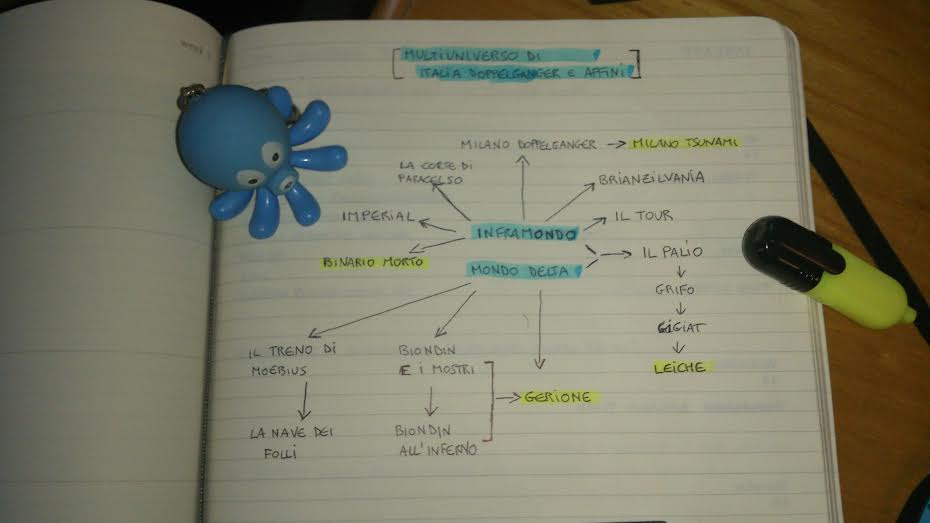 MULTIUNIVERSO DI
ITALIA DOPPELGANGER E AFFINI
MILANO DOPPELGANGER → MILANO TSUNAMI
LA CORTE DI
PARACELSO
BRIANZILVANIA
IMPERIAL
IL TOUR
INFRAMONDO
BINARIO MORTO
IL PALIO
MONDO DELTA
GRIFO
GIGIAT
LEICHE
IL TRENO DI
MOEBIUS
BIONDIN
E I MOSTRI
GERIONE
LA NAVE DEI
FOLLI
BIONDIN
ALL'INFERNO